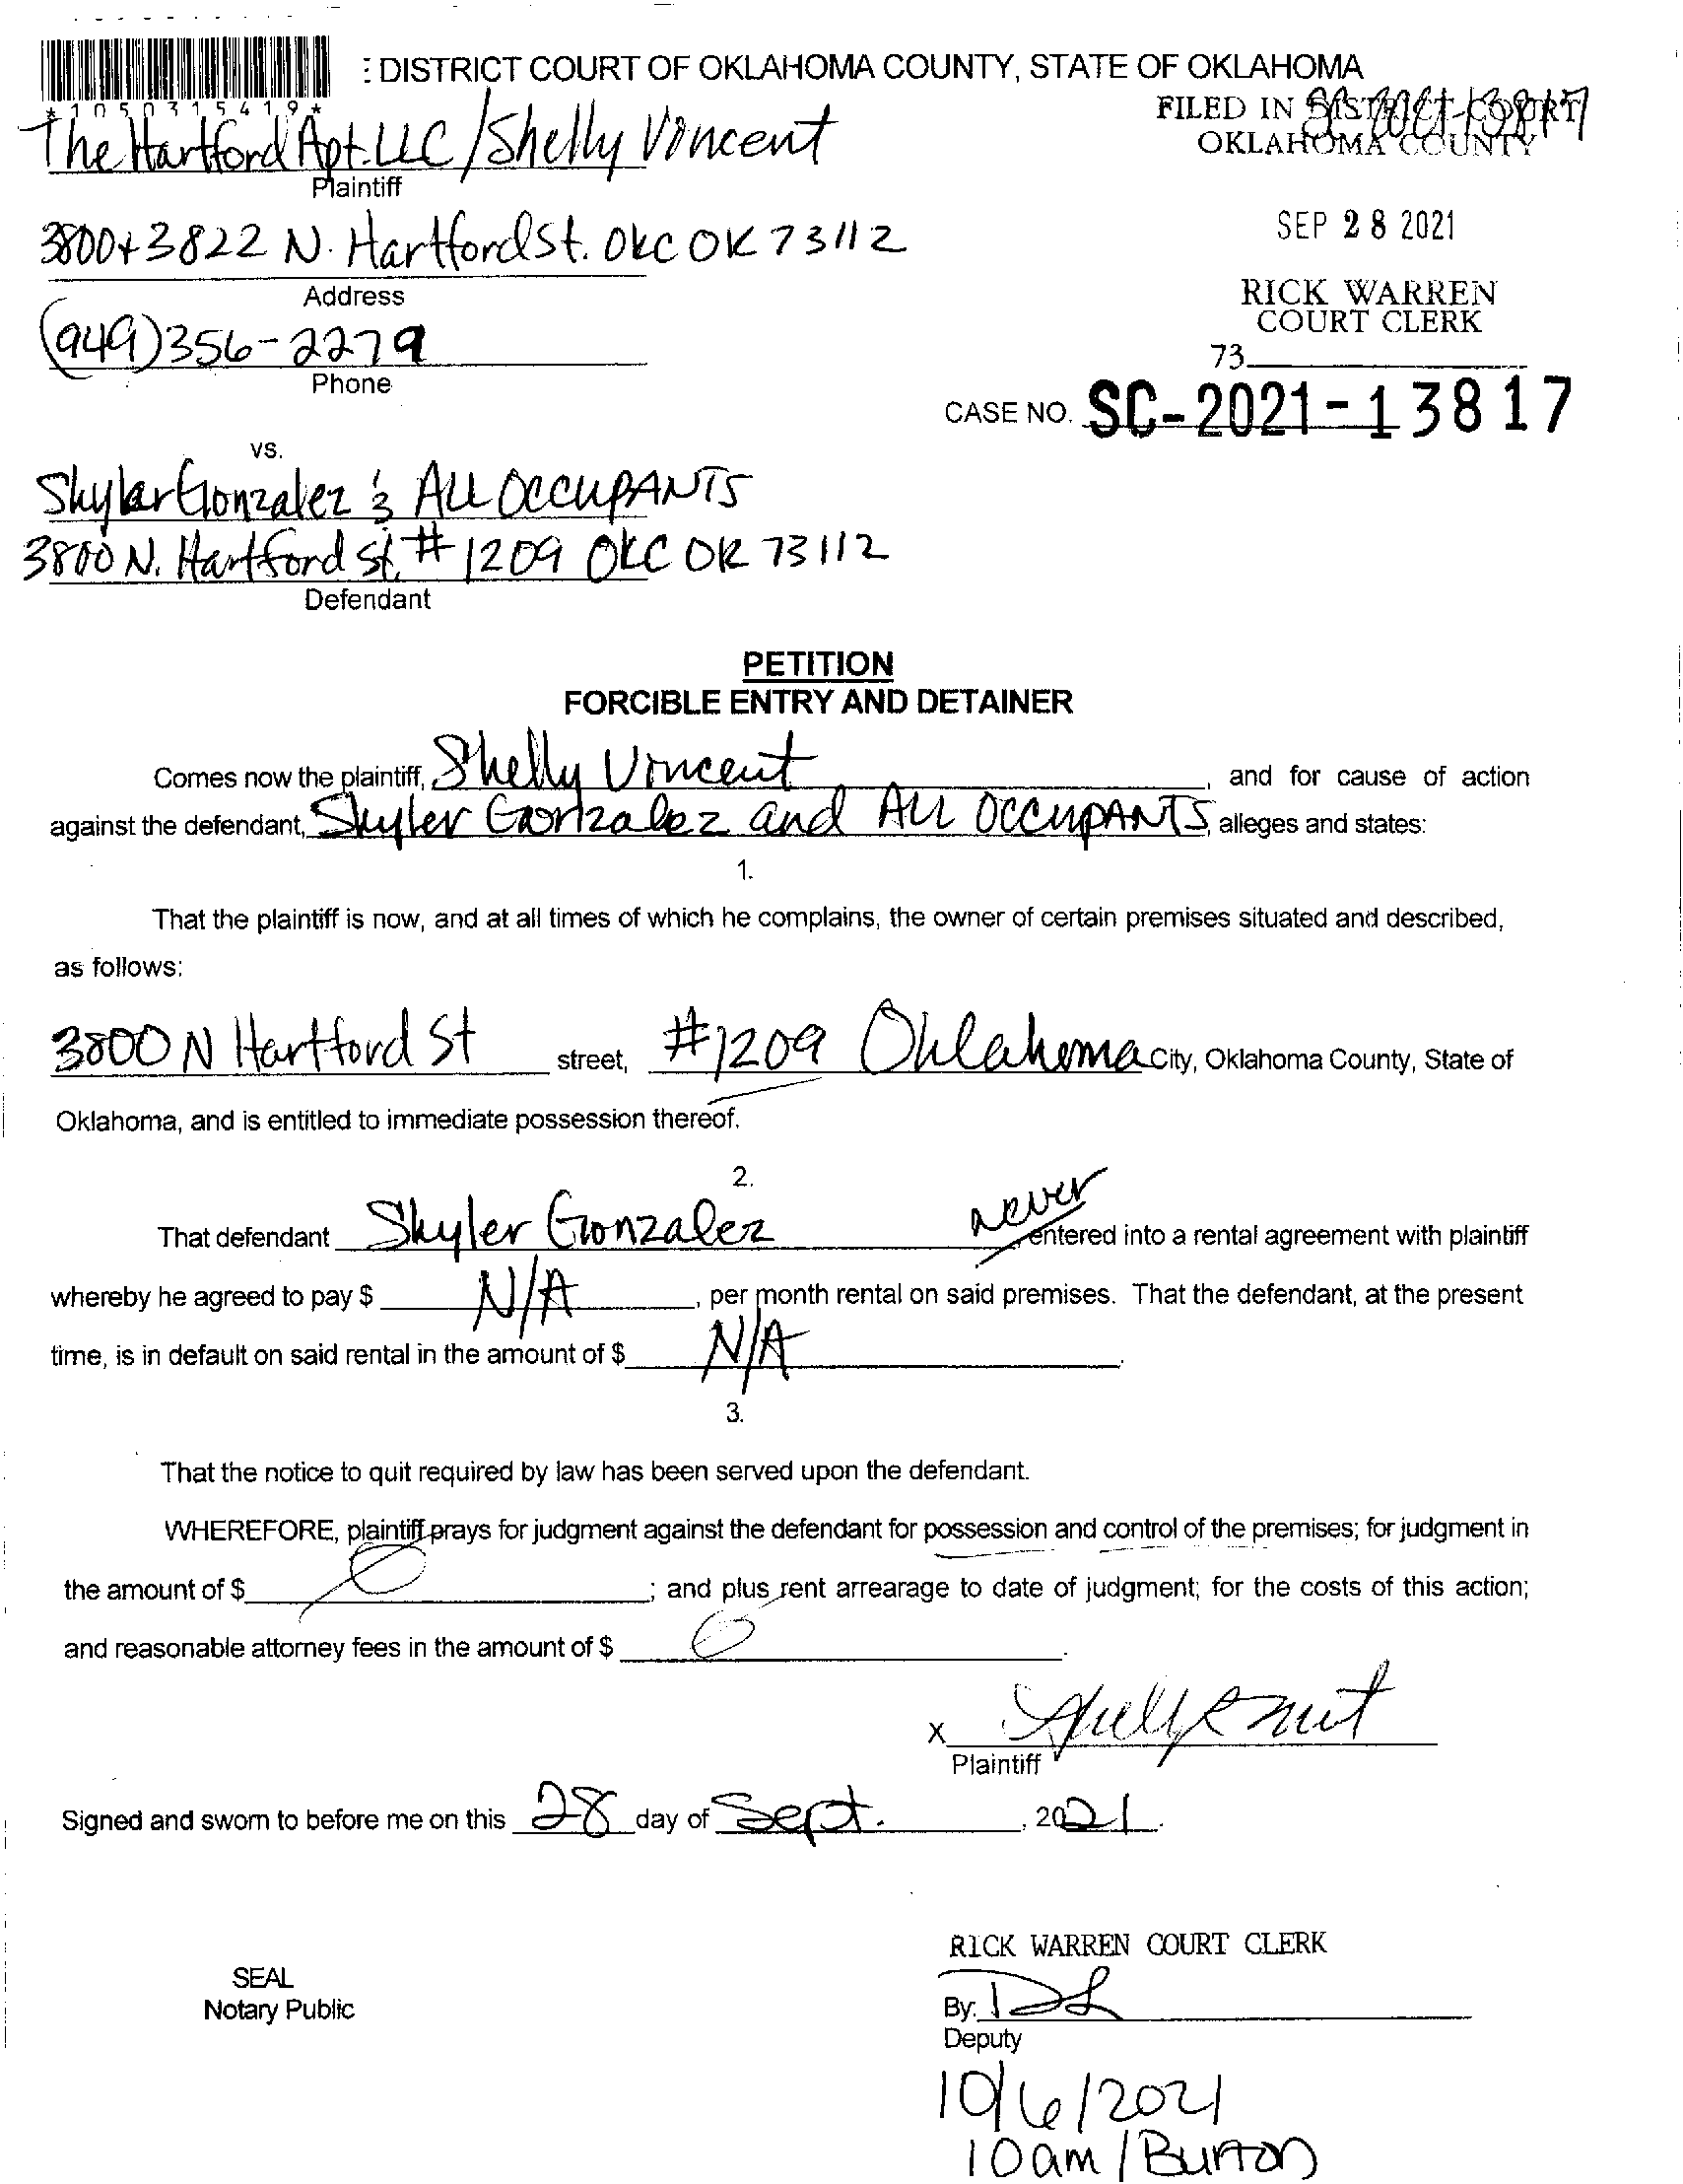 : DISTRICT COURT OF OKLAHOMA COUNTY, STATE OF OKLAHOMA
* 1 0 5 0 3 1 5 4 1 9 *
FILED IN DISTRICT COURT
OKLAHOMA COUNTY
SC-2021-13817
The Hartford Apt. LLC / Shelly Vincent
Plaintiff
SEP 28 2021
3800+3822 N. Hartford St. OKC OK 73112
Address
RICK WARREN
COURT CLERK
(949)356-2279
73
Phone
CASE NO. SC-2021-13817
vs.
Skylar Gonzalez & ALL OCCUPANTS
3800 N. Hartford St. #1209 OKC OK 73112
Defendant
PETITION
FORCIBLE ENTRY AND DETAINER
Comes now the plaintiff, Shelly Vincent, and for cause of action
against the defendant, Skyler Gonzalez and ALL OCCUPANTS, alleges and states:
1.
That the plaintiff is now, and at all times of which he complains, the owner of certain premises situated and described,
as follows:
3800 N Hartford St street, #1209 Oklahoma City, Oklahoma County, State of
Oklahoma, and is entitled to immediate possession thereof.
2.
That defendant Skyler Gonzalez never entered into a rental agreement with plaintiff
whereby he agreed to pay $ N/A, per month rental on said premises. That the defendant, at the present
time, is in default on said rental in the amount of $ N/A.
3.
That the notice to quit required by law has been served upon the defendant.
WHEREFORE, plaintiff prays for judgment against the defendant for possession and control of the premises; for judgment in
the amount of $ 0; and plus rent arrearage to date of judgment; for the costs of this action;
and reasonable attorney fees in the amount of $ 0.
X
Plaintiff
Signed and sworn to before me on this 28 day of Sept., 2021.
RICK WARREN COURT CLERK
SEAL
Notary Public
By:
Deputy
10/6/2021
10am / Burton